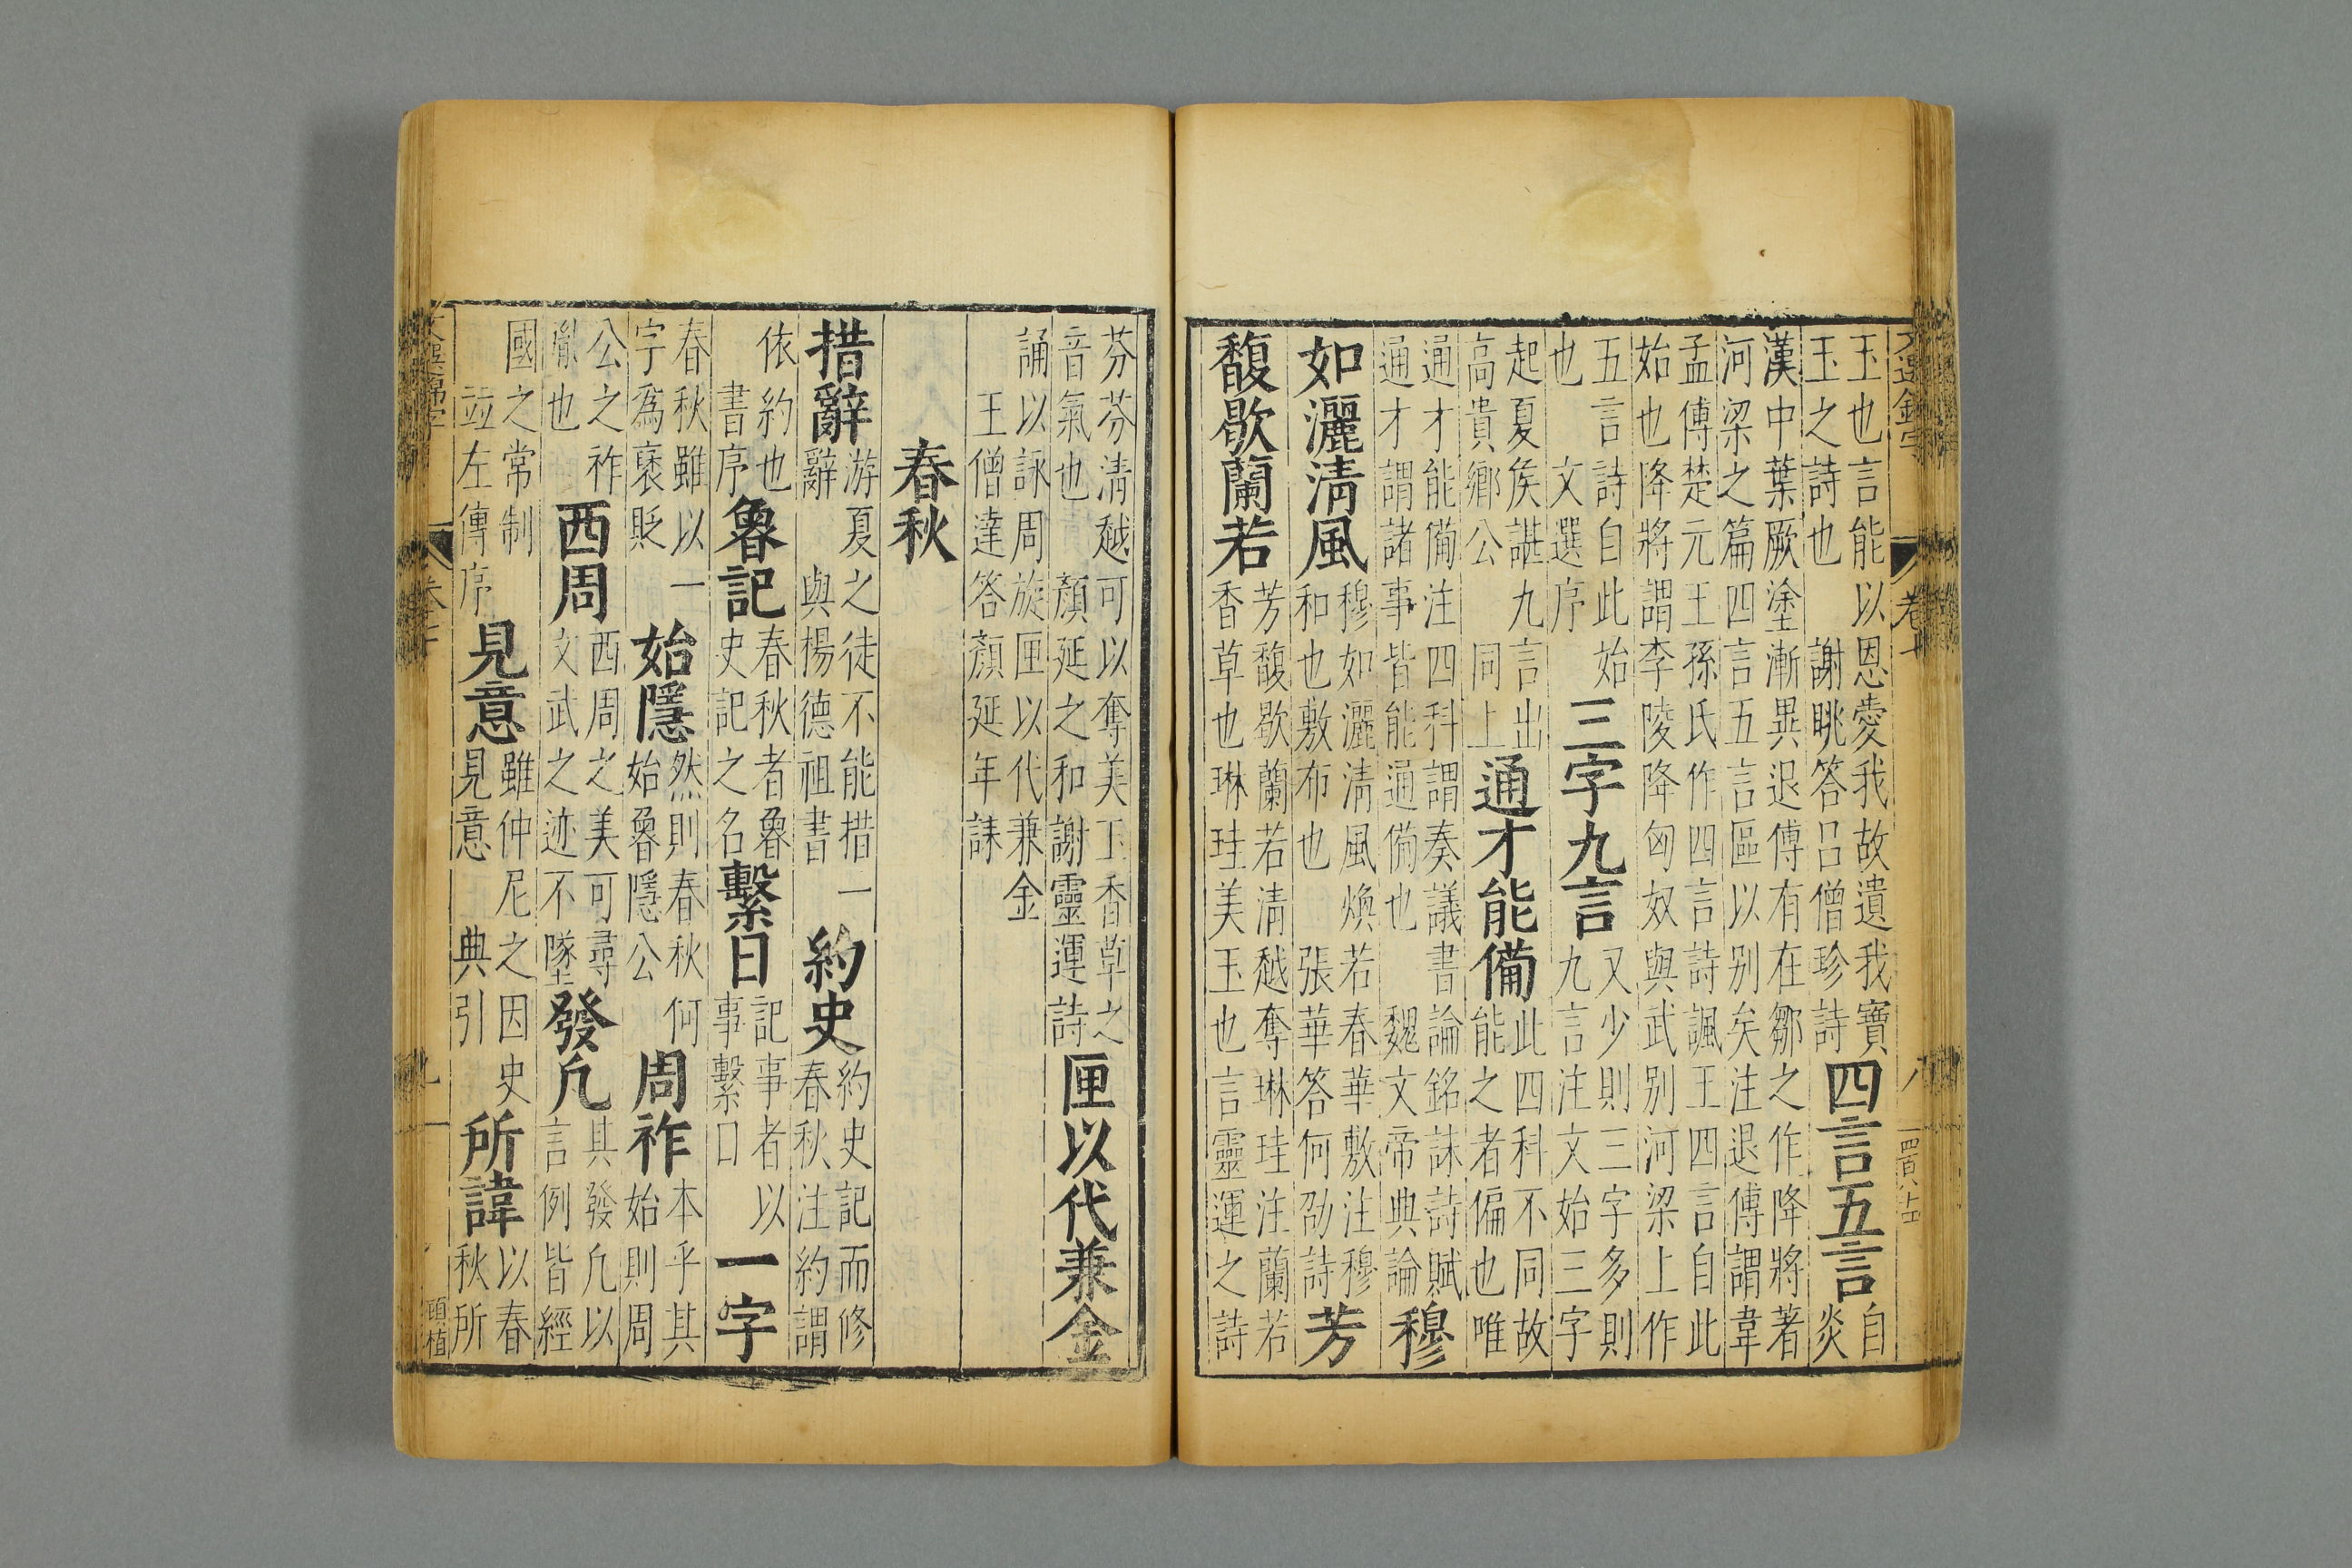 文選錦字 卷十 八
玉也言能以恩愛我故遺我寶
玉之詩也 謝眺答呂僧珍詩
四言五言
自
炎
漢中葉厥塗漸異退傅有在鄒之作降將著
河梁之篇四言五言區以别矣注退傅謂韋
孟傅楚元王孫氏作四言詩諷王四言自此
始也降將謂李陵降匈奴與武别河梁上作
五言詩自此始
也 文選序
三字九言
又少則三字多則
九言注文始三字
起夏侯諶九言出
高貴鄉公 同上
通才能備
此四科不同故
能之者偏也唯
通才能備注四科謂奏議書論銘誄詩賦
通才謂諸事皆能通備也 魏文帝典論
穆
如灑清風
穆如灑清風煥若春華敷注穆
和也敷布也 張華答何劭詩
芳
馥歇蘭若
芳馥歇蘭若清越奪琳珪注蘭若
香草也琳珪美玉也言靈運之詩
芬芬清越可以奪美玉香草之
音氣也 顏延之和謝靈運詩
匣以代兼金
誦以詠周旋匣以代兼金
王僧達答顏延年誄
春秋
措辭
游夏之徒不能措一
辭 與楊德祖書
約史
約史記而修
春秋注約謂
依約也
書序
魯記
春秋者魯
史記之名
繫日
記事者以
事繫日
一字
春秋雖以一
字為褒貶
始隱
然則春秋何
始魯隱公
周祚
本乎其
始則周
公之祚
胤也
西周
西周之美可尋
文武之迹不墜
發凡
其發凡以
言例皆經
國之常制
竝左傳序
見意
雖仲尼之因史
見意 典引
所諱
以春
秋所